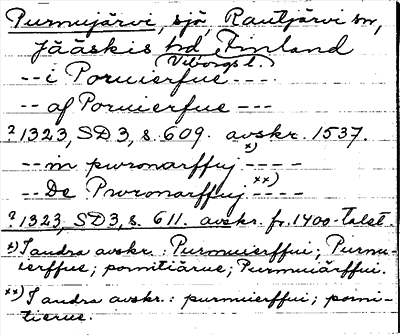 Purmujärvi, sjö, Rautjärvi sn,
Jääskis hd, Finland
Viborgs l.
-- i Poruierfue ----
-- af Poruierfue ---
? 1323, SD 3, s. 609. avskr. 1537.
-- in pwronarffuj x) ----
-- De Pwronarffuj xx) ----
? 1323, SD 3, s. 611. avskr. fr. 1400-talet.
x) I andra avskr.: Purmuierffui; Purmu-
ierffue; pormitiärue; Purmuiärffui.
xx) I andra avskr.: purmuierffui; pormi-
tierue.